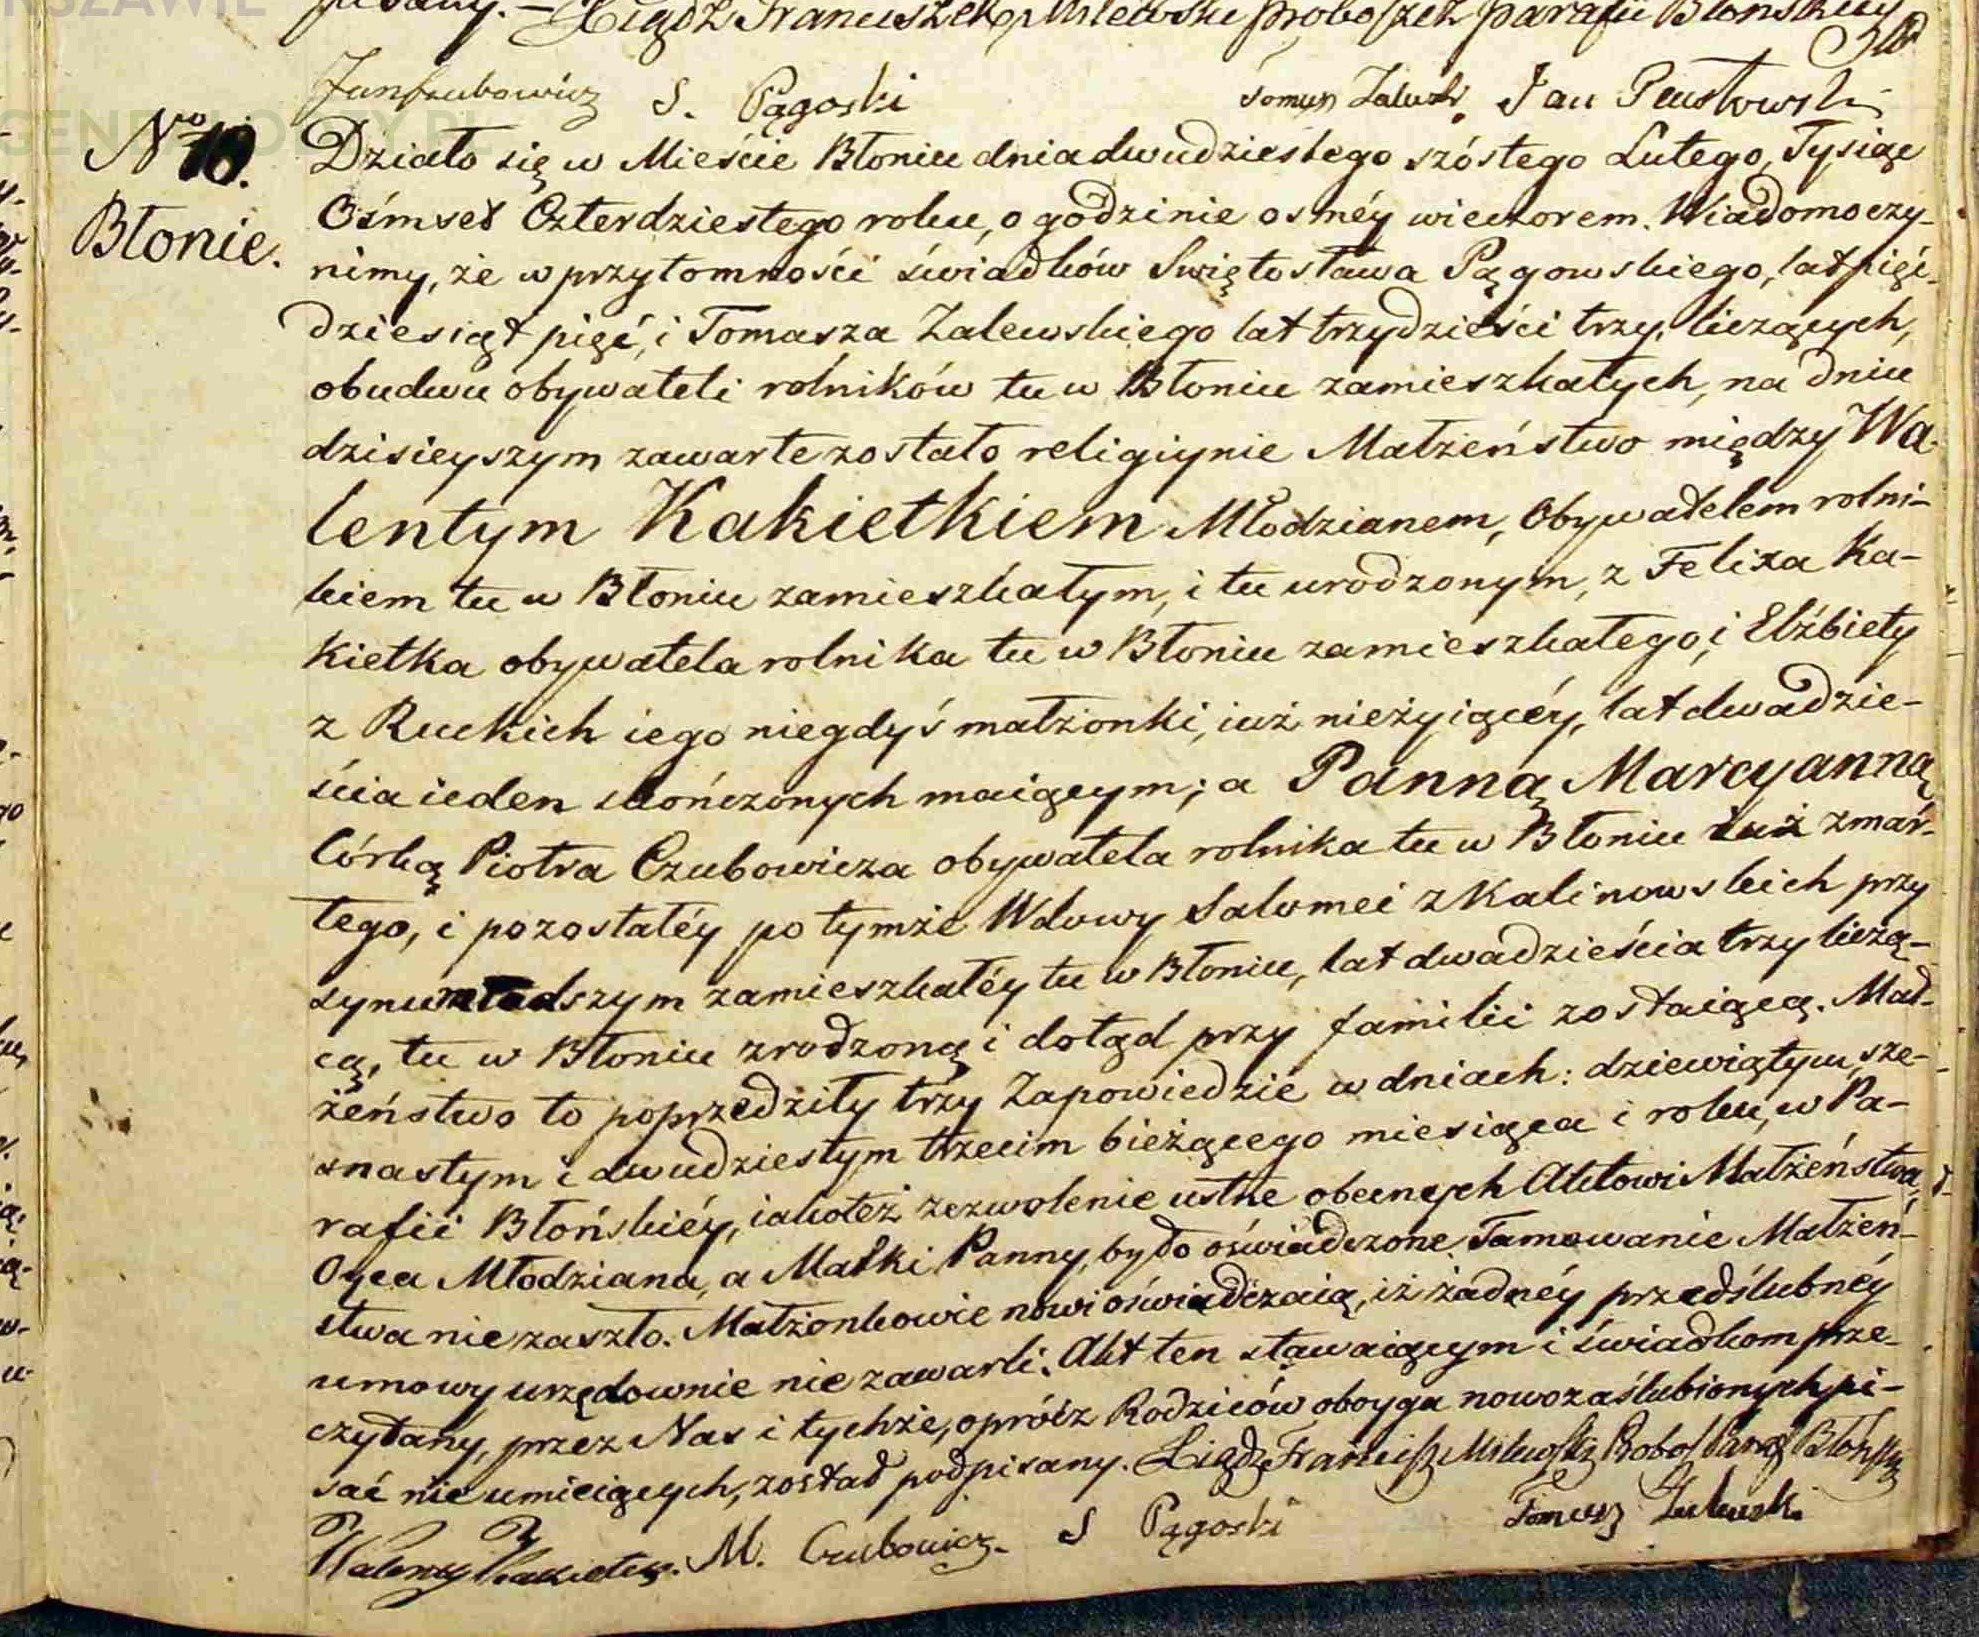 RSZAWIE
pisany. – Xiądz Franciszek Milewski proboszcz parafii Błońskiey
S. Pągoski Jan
GEN
Nro 18.
Błonie.
Działo się w Mieście Błoniu dnia dwudziestego szóstego Lutego, Tysiąc
Ośmset Czterdziestego roku, o godzinie osméy wieczorem. Wiadomo czy-
nimy, że w przytomności świadków Świętosława Pągowskiego, lat pięć-
dziesiąt pięć, i Tomasza Zalewskiego lat trzydzieści trzy, liczących,
obudwu obywateli rolników tu w Błoniu zamieszkałych, na dniu
dzisieyszym zawarte zostało religiynie Małżeństwo między Wa-
lentym Kakietkiem Młodzianem, Obywatelem rolni-
kiem tu w Błoniu zamieszkałym, i tu urodzonym, z Felixa Ka-
kietka obywatela rolnika tu w Błoniu zamieszkałego, i Elżbiety
z Ruckich iego niegdyś małżonki, iuż nieżyiącéy, lat dwadzie-
ścia ieden skończonych maiącym; a Panną Marcyanną
Córką Piotra Czubowicza obywatela rolnika tu w Błoniu iuż zmar-
łego, i pozostałéy po tymże Wdowy Salomei z Kalinowskich przy
synu młodszym zamieszkałéy tu w Błoniu, lat dwadzieścia trzy liczą-
cą, tu w Błoniu zrodzoną i dotąd przy familii zostaiącą. Mał-
żeństwo to poprzedziły trzy Zapowiedzie w dniach: dziewiątym, sze-
snastym i dwudziestym trzecim bieżącego miesiąca i roku, w Pa-
rafii Błońskiéy, iakoteż zezwolenie ustne obecnych Aktowi Małżeństwa,
Oyca Młodziana, a Matki Panny, było oświadczone. Tamowanie Małżeń-
stwa nie zaszło. Małżonkowie nowi oświadczaią, iż żadnéy przedślubnéy
umowy urzędownie nie zawarli. Akt ten stawaiącym i świadkom prze-
czytany, przez Nas i tychże, oprócz Rodziców oboyga nowozaślubionych pi-
sać nie umieiących, został podpisany. Xiądz Francisz Milewski Probos Paraf Błońskiey
Walenty Kakietek. M. Czubowicz. S Pągoski Tomasz Zalewski